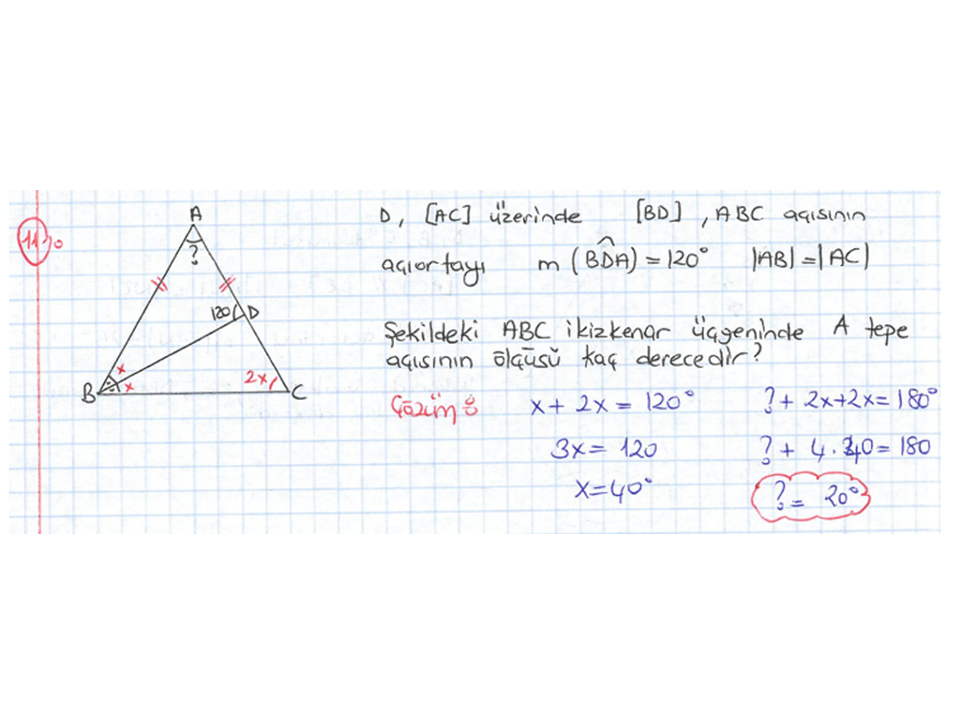 11)
A
?
120
D
x
x
B
2x
C
D, [AC] üzerinde [BD], ABC açısının
açıortayı m (BD̂A) = 120° |AB| = |AC|
Şekildeki ABC ikizkenar üçgeninde A tepe
açısının ölçüsü kaç derecedir?
Çözüm: x + 2x = 120° ? + 2x + 2x = 180°
3x = 120 ? + 4.40 = 180
x = 40° ? = 20°